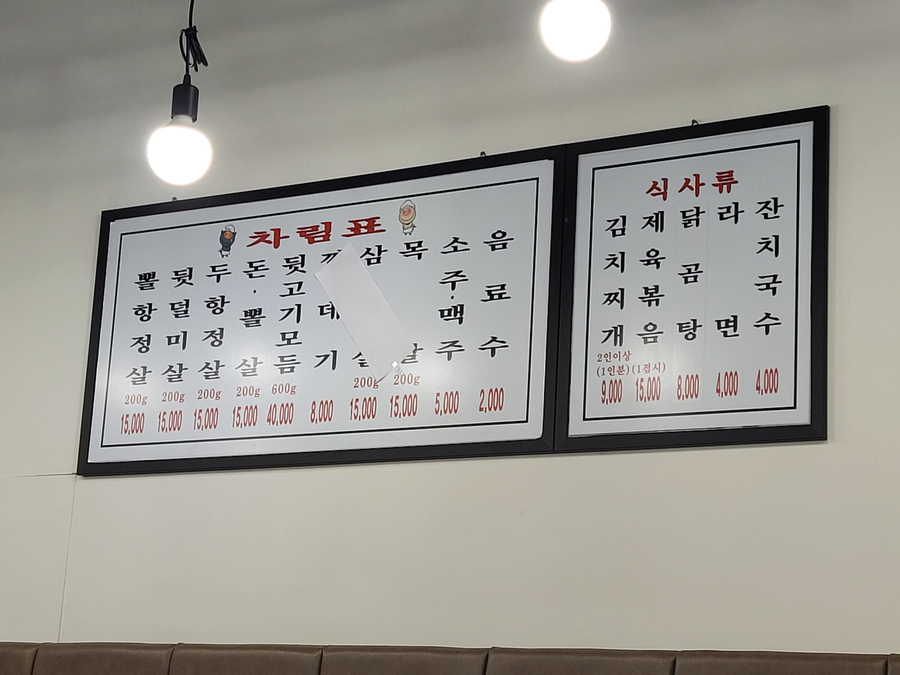 차림표
뽈항정살 200g 15,000
뒷덜미살 200g 15,000
두항정살 200g 15,000
돈·뽈살 200g 15,000
뒷고기모듬 600g 40,000
데기 8,000
삼 200g 15,000
목살 200g 15,000
소주·맥주 5,000
음료수 2,000
식사류
김치찌개 2인이상 (1인분) 9,000
제육볶음 (1접시) 15,000
닭곰탕 8,000
라면 4,000
잔치국수 4,000